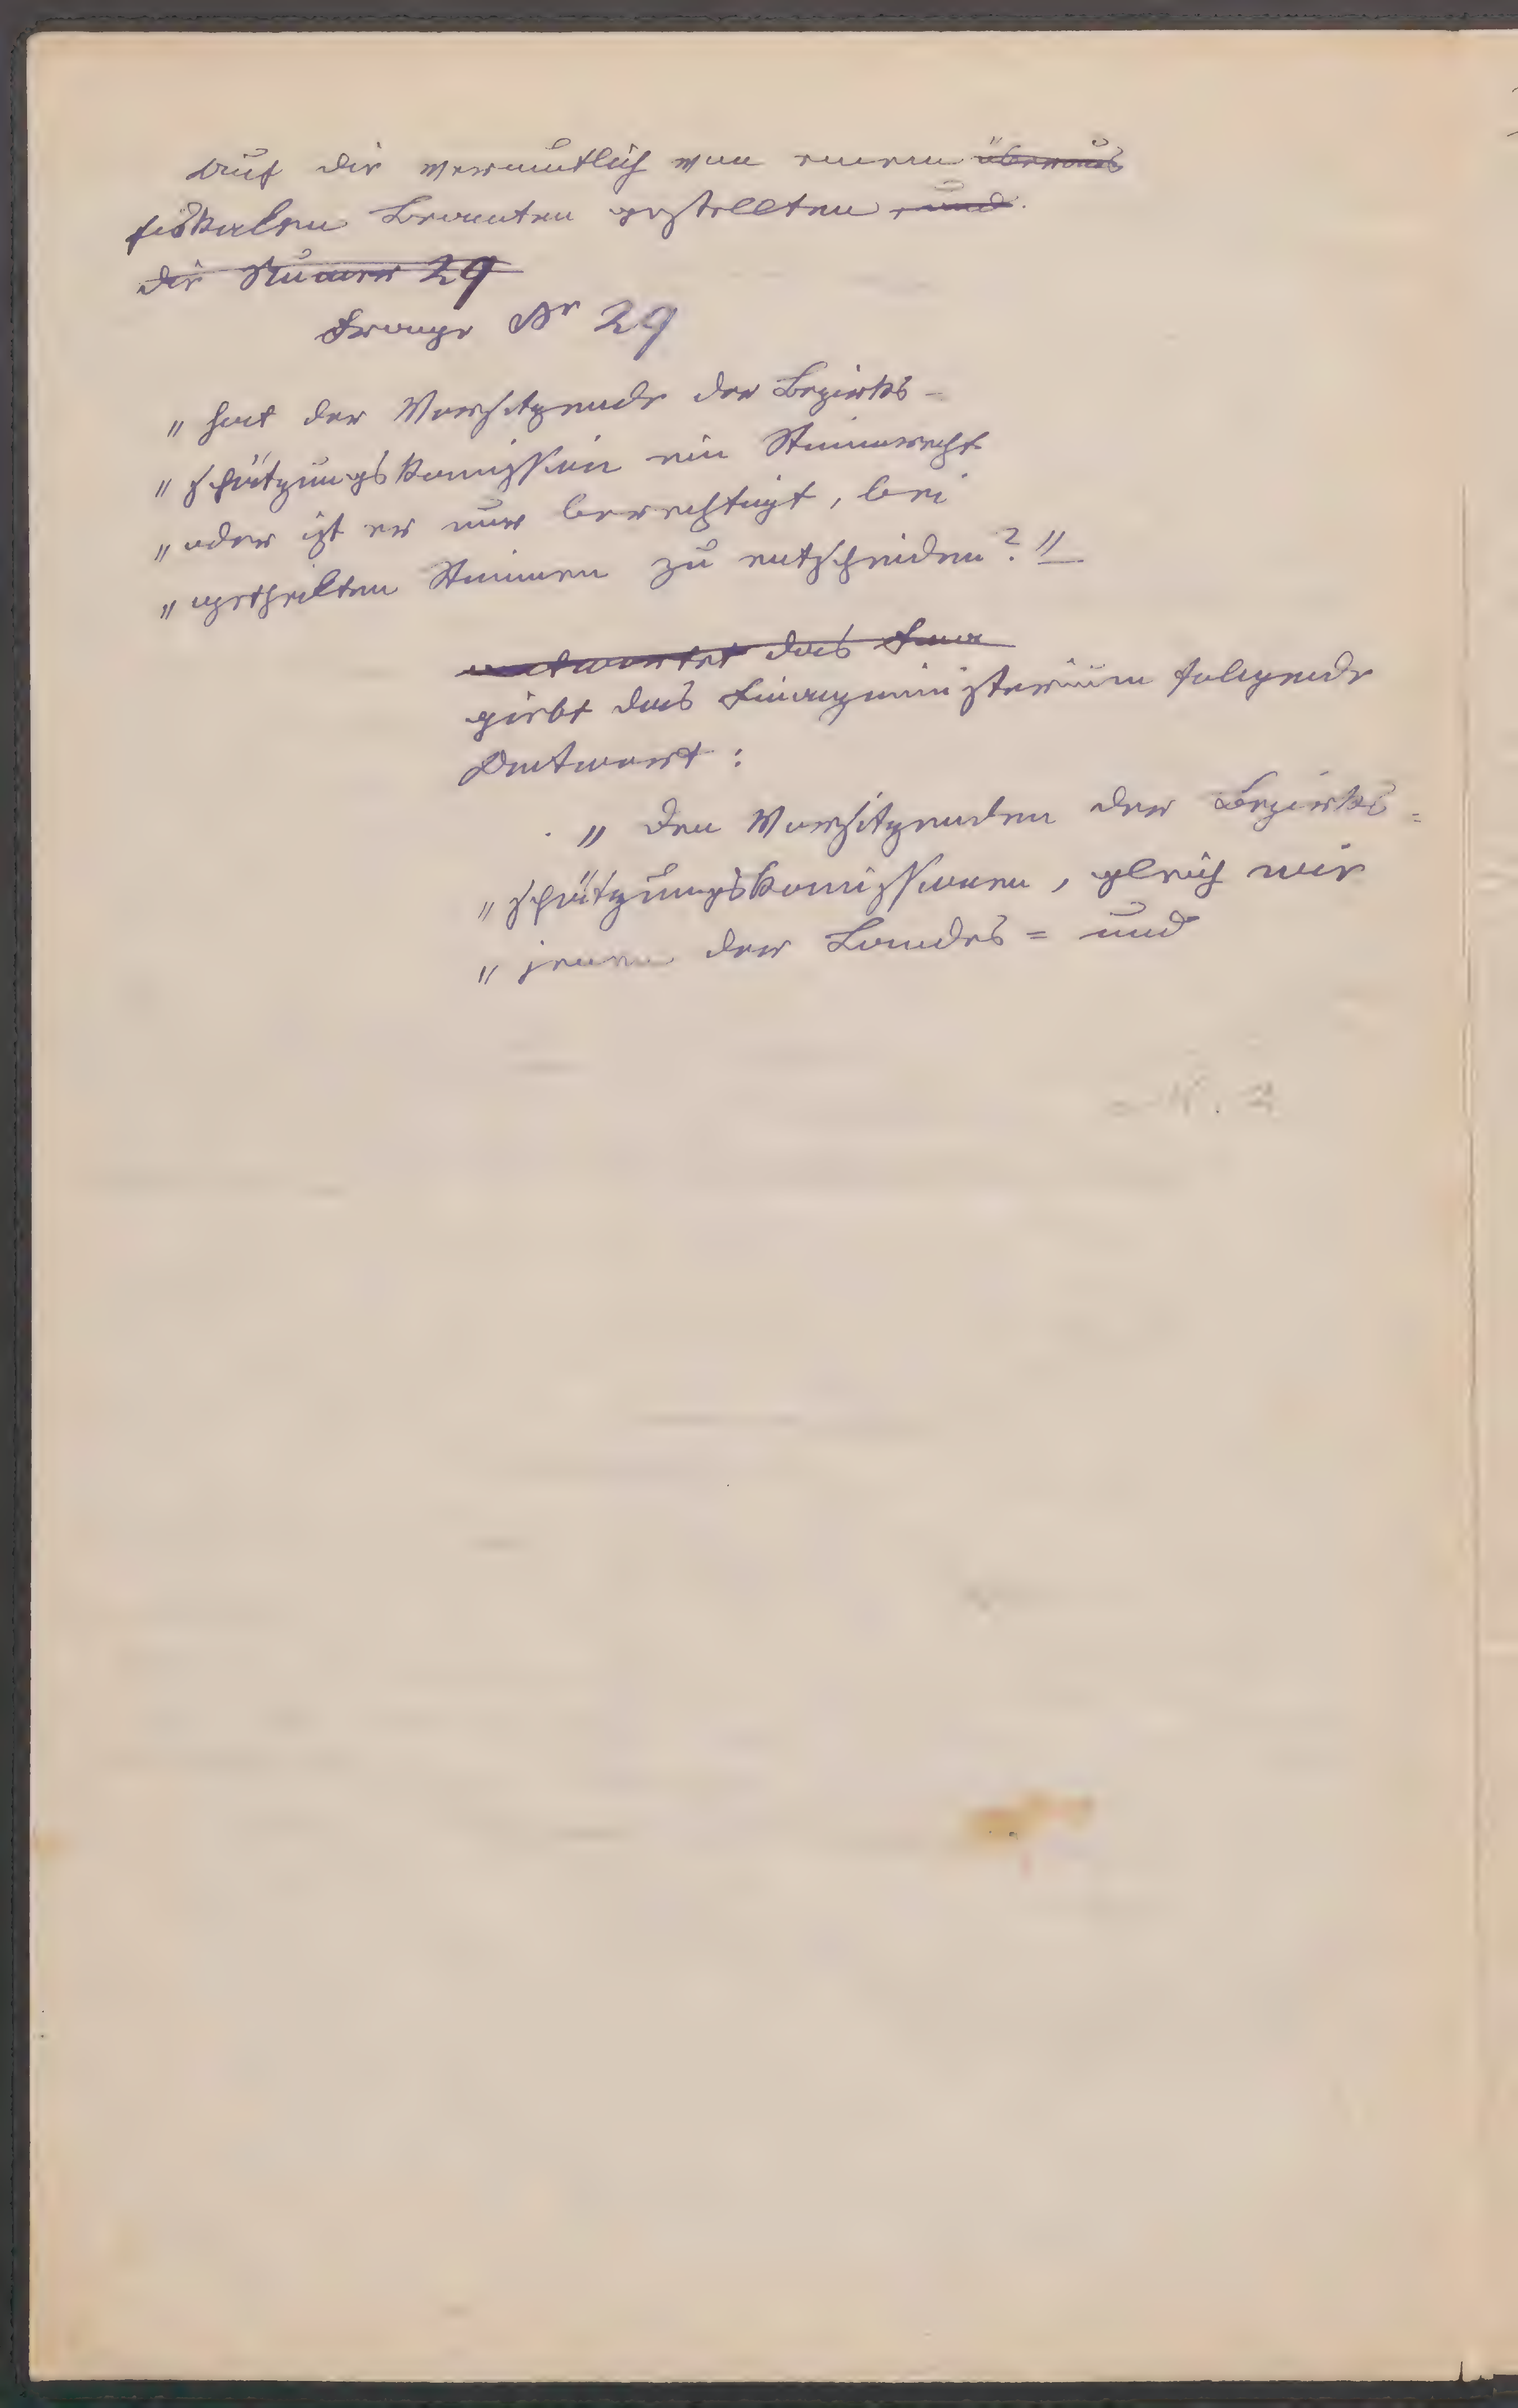 Auf die vermutlich von einem überaus
fiskalen Beamten gestellten, und
die Numer 29
Frage Nr 29
„ hat der Vorsitzende der Bezirks-
„ schätzungskomission ein Stimmrecht
„ oder ist er nur berechtigt, bei
„ getheilten Stimmen zu entscheiden? "
antwortet das Fina
giebt das Finanzministerium folgende
Antwort:
„ Den Vorsitzenden der Bezirks=
„ schätzungskomissionen, gleich wie
„ jenen der Landes= und